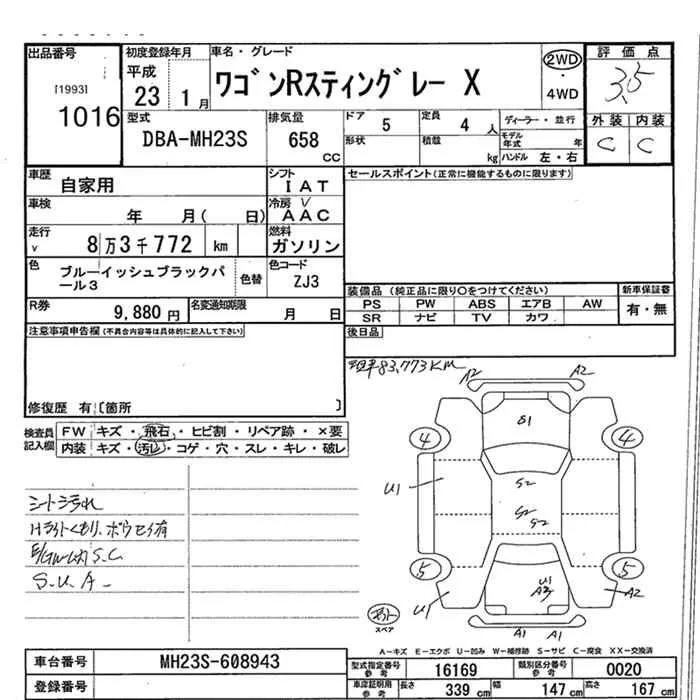 出品番号 初度登録年月 車名・グレード 評価点
[1993] 平成 ワゴンRスティングレー X 2WD 3.5
1016 23 1月 ・4WD
外装 内装
型式 排気量 ドア 5 定員 4 人 ディーラー・並行
DBA-MH23S 658 cc 形状 積載 kg モデル年式 年 C C
ハンドル 左・右
車歴 自家用 シフト IAT セールスポイント(正常に機能するものに限ります)
車検 年 月( 日) 冷房 AAC
走行 8万3千772 km 燃料 ガソリン
色 ブルーイッシュブラックパール3 色替 色コード ZJ3
装備品 (純正品に限り○をつけてください) 新車保証書
PS PW ABS エアB AW 有・無
SR ナビ TV カワ
R券 9,880円 名変通知期限 月 日
後日品
注意事項申告欄(不具合内容等は具体的に記入して下さい)
83,773KM
修復歴 有〔箇所 〕
検査員記入欄 FW キズ・飛石・ヒビ割・リペア跡・×要
内装 キズ・汚レ・コゲ・穴・スレ・キレ・破レ
A2 A2
S1
4 4
U1 S2
S2
S2
5 5
U1 U1 A2
スペア
A1 A1
シート汚れ
Hライトくもり、ボウセイ有
S.C
S.U.A
A-キズ E-エクボ U-凹み W-補修跡 S-サビ C-腐食 XX-交換済
車台番号 MH23S-608943 型式指定番号 参考 16169 類別区分番号 参考 0020
登録番号 車庫証明用 参考 長さ 339cm 幅 147cm 高さ 167cm